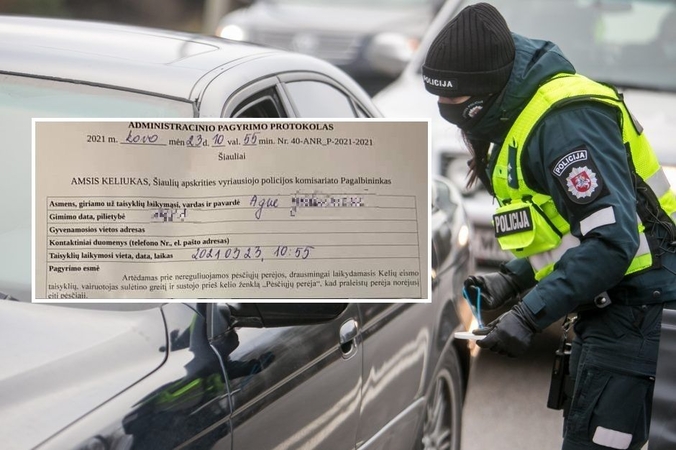 POLICIJA
ADMINISTRACINIO PAGYRIMO PROTOKOLAS
2021 m. kovo mėn 23 d. 10 val. 55 min. Nr. 40-ANR_P-2021-2021
Šiauliai
AMSIS KELIUKAS, Šiaulių apskrities vyriausiojo policijos komisariato Pagalbininkas
Asmens, giriamo už taisyklių laikymąsi, vardas ir pavardė Agnė
Gimimo data, pilietybė
Gyvenamosios vietos adresas
Kontaktiniai duomenys (telefono Nr., el. pašto adresas)
Taisyklių laikymosi vieta, data, laikas 2021 03 23, 10:55
Pagyrimo esmė
Artėdamas prie nereguliuojamos pėsčiųjų perėjos, drausmingai laikydamasis Kelių eismo
taisyklių, vairuotojas sulėtino greitį ir sustojo prieš kelio ženklą „Pėsčiųjų perėja", kad praleistų perėja norėjusį
eiti pėsčiąjį.
POLICIJA
POLICIJA